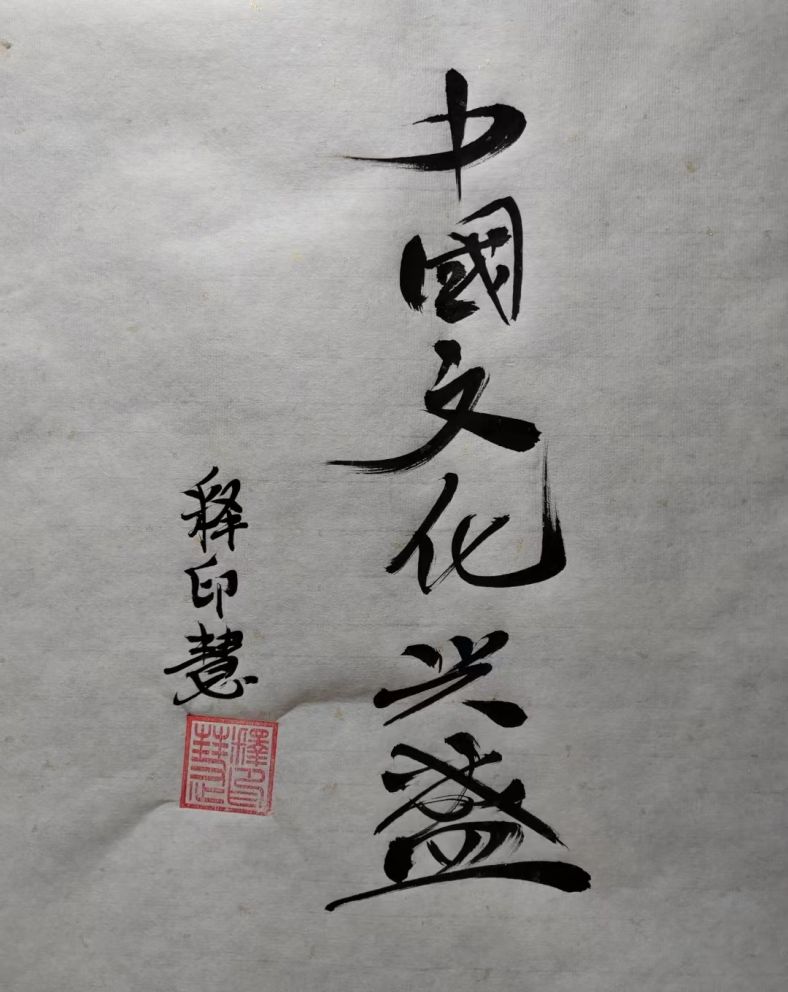 中國文化兴盛
释印慧
釋印慧